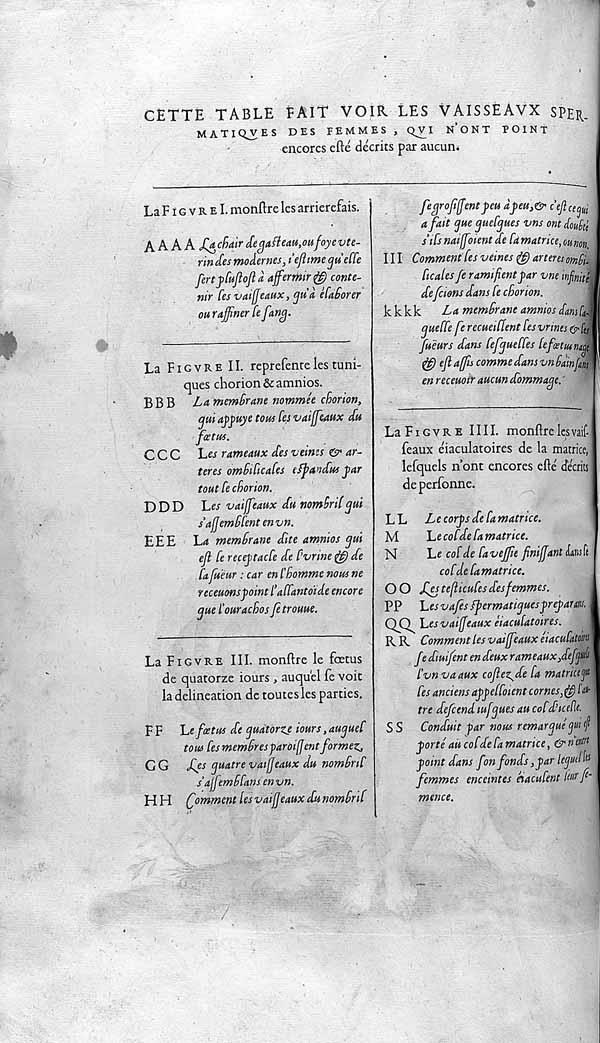 CETTE TABLE FAIT VOIR LES VAISSEAVX SPER-
MATIQVES DES FEMMES, QVI N'ONT POINT
encores esté décrits par aucun.
La FIGVRE I. monſtre les arrierefais.
AAAA La chair de gaſteau, ou foye vte-
rin des modernes, i'eſtime qu'elle
ſert pluſtoſt à affermir & conte-
nir les vaiſſeaux, qu'à élaborer
ou raffiner le ſang.
La FIGVRE II. repreſente les tuni-
ques chorion & amnios.
BBB La membrane nommée chorion,
qui appuye tous les vaiſſeaux du
fœtus.
CCC Les rameaux des veines & ar-
teres ombilicales eſpandus par
tout le chorion.
DDD Les vaiſſeaux du nombril qui
s'aſſemblent en vn.
EEE La membrane dite amnios qui
eſt le receptacle de l'vrine & de
la ſueur : car en l'homme nous ne
receuons point l'allantoïde encore
que l'ourachos ſe trouue.
La FIGVRE III. monſtre le fœtus
de quatorze iours, auquel ſe voit
la delineation de toutes les parties.
FF Le fœtus de quatorze iours, auquel
tous les membres paroiſſent formez,
GG Les quatre vaiſſeaux du nombril
s'aſſemblans en vn.
HH Comment les vaiſſeaux du nombril
ſe groſiſſent peu à peu, & c'eſt ce qui
a fait que quelques vns ont doubté
s'ils naiſſoient de la matrice, ou non.
III Comment les veines & arteres ombi-
licales ſe ramifient par vne infinité
de ſcions dans le chorion.
kkkk La membrane amnios dans la-
quelle ſe recueillent les vrines & les
ſueurs dans leſquelles le fœtus nage
& eſt aſſis comme dans vn bain ſans
en receuoir aucun dommage.
La FIGVRE IIII. monſtre les vaiſ-
ſeaux éiaculatoires de la matrice,
leſquels n'ont encores eſté décrits
de perſonne.
LL Le corps de la matrice.
M Le col de la matrice.
N Le col de la veſſie finiſſant dans le
col de la matrice.
OO Les teſticules des femmes.
PP Les vaſes ſpermatiques preparans.
QQ Les vaiſſeaux éiaculatoires.
RR Comment les vaiſſeaux éiaculatoires
ſe diuiſent en deux rameaux, deſquels
l'vn va aux coſtez de la matrice que
les anciens appelloient cornes, & l'au-
tre deſcend iuſques au col d'icelle.
SS Conduit par nous remarqué qui eſt
porté au col de la matrice, & n'entre
point dans ſon fonds, par lequel les
femmes enceintes éiaculent leur ſe-
mence.